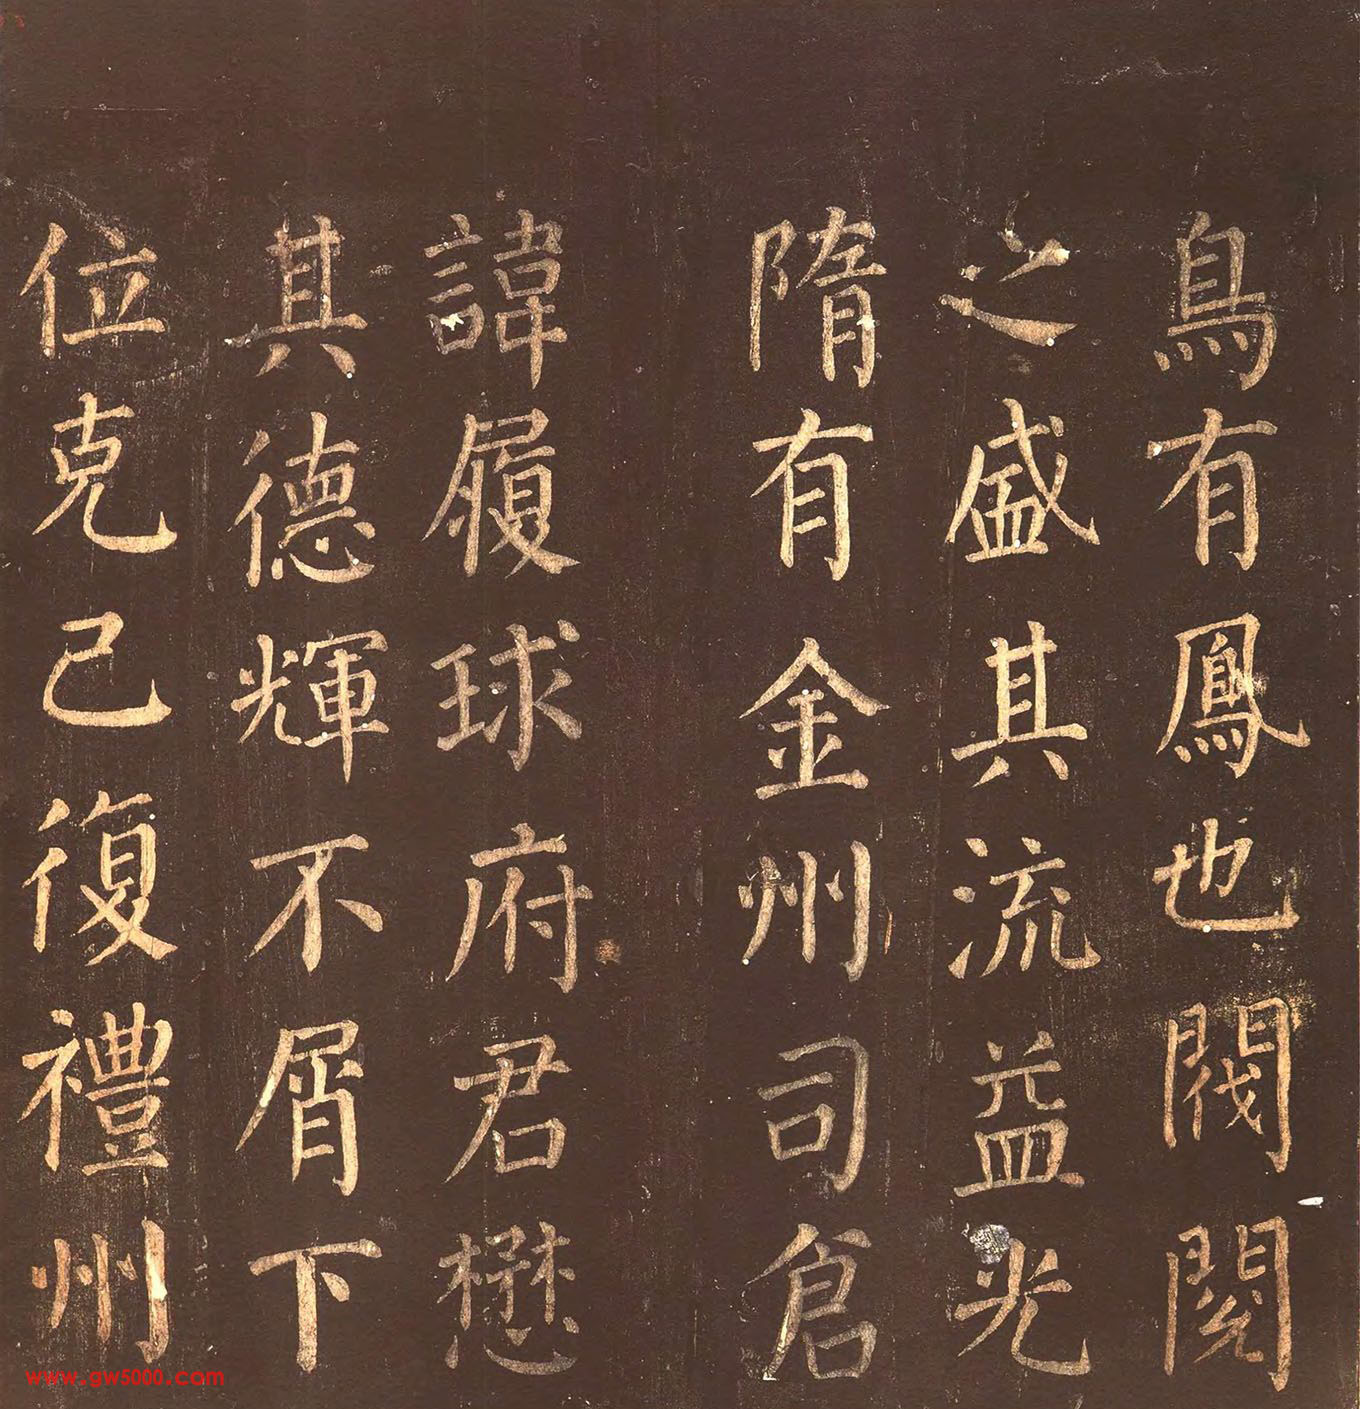 鳥有鳳也閥閱
之盛其流益光
隋有金州司倉
諱履球府君懋
其德輝不屑下
位克己復禮州
www.gw5000.com